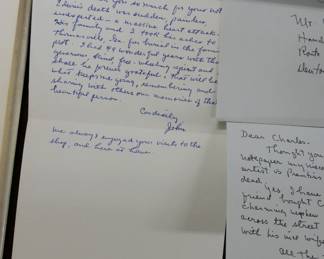 you so much for your not
Edwin's death was sudden, painless,
unexpected - a massive heart attack.
His family and I took his ashes to
for burial in the family
plot. I had 49 wonderful years with this
generous, kind, free-wheeling spirit and
shall be forever grateful. That will be
what keeps me going, remembering and
sharing with others our memories of this
beautiful person.
Cordially,
John
We always enjoyed your visits to the
shop, and here at home.
Mr
Dear Charles,
Thought you
notepaper my
artist is Prentiss
dead, yes, I have
friend bought C
charming nephew
across the street
with his nice wife
All the